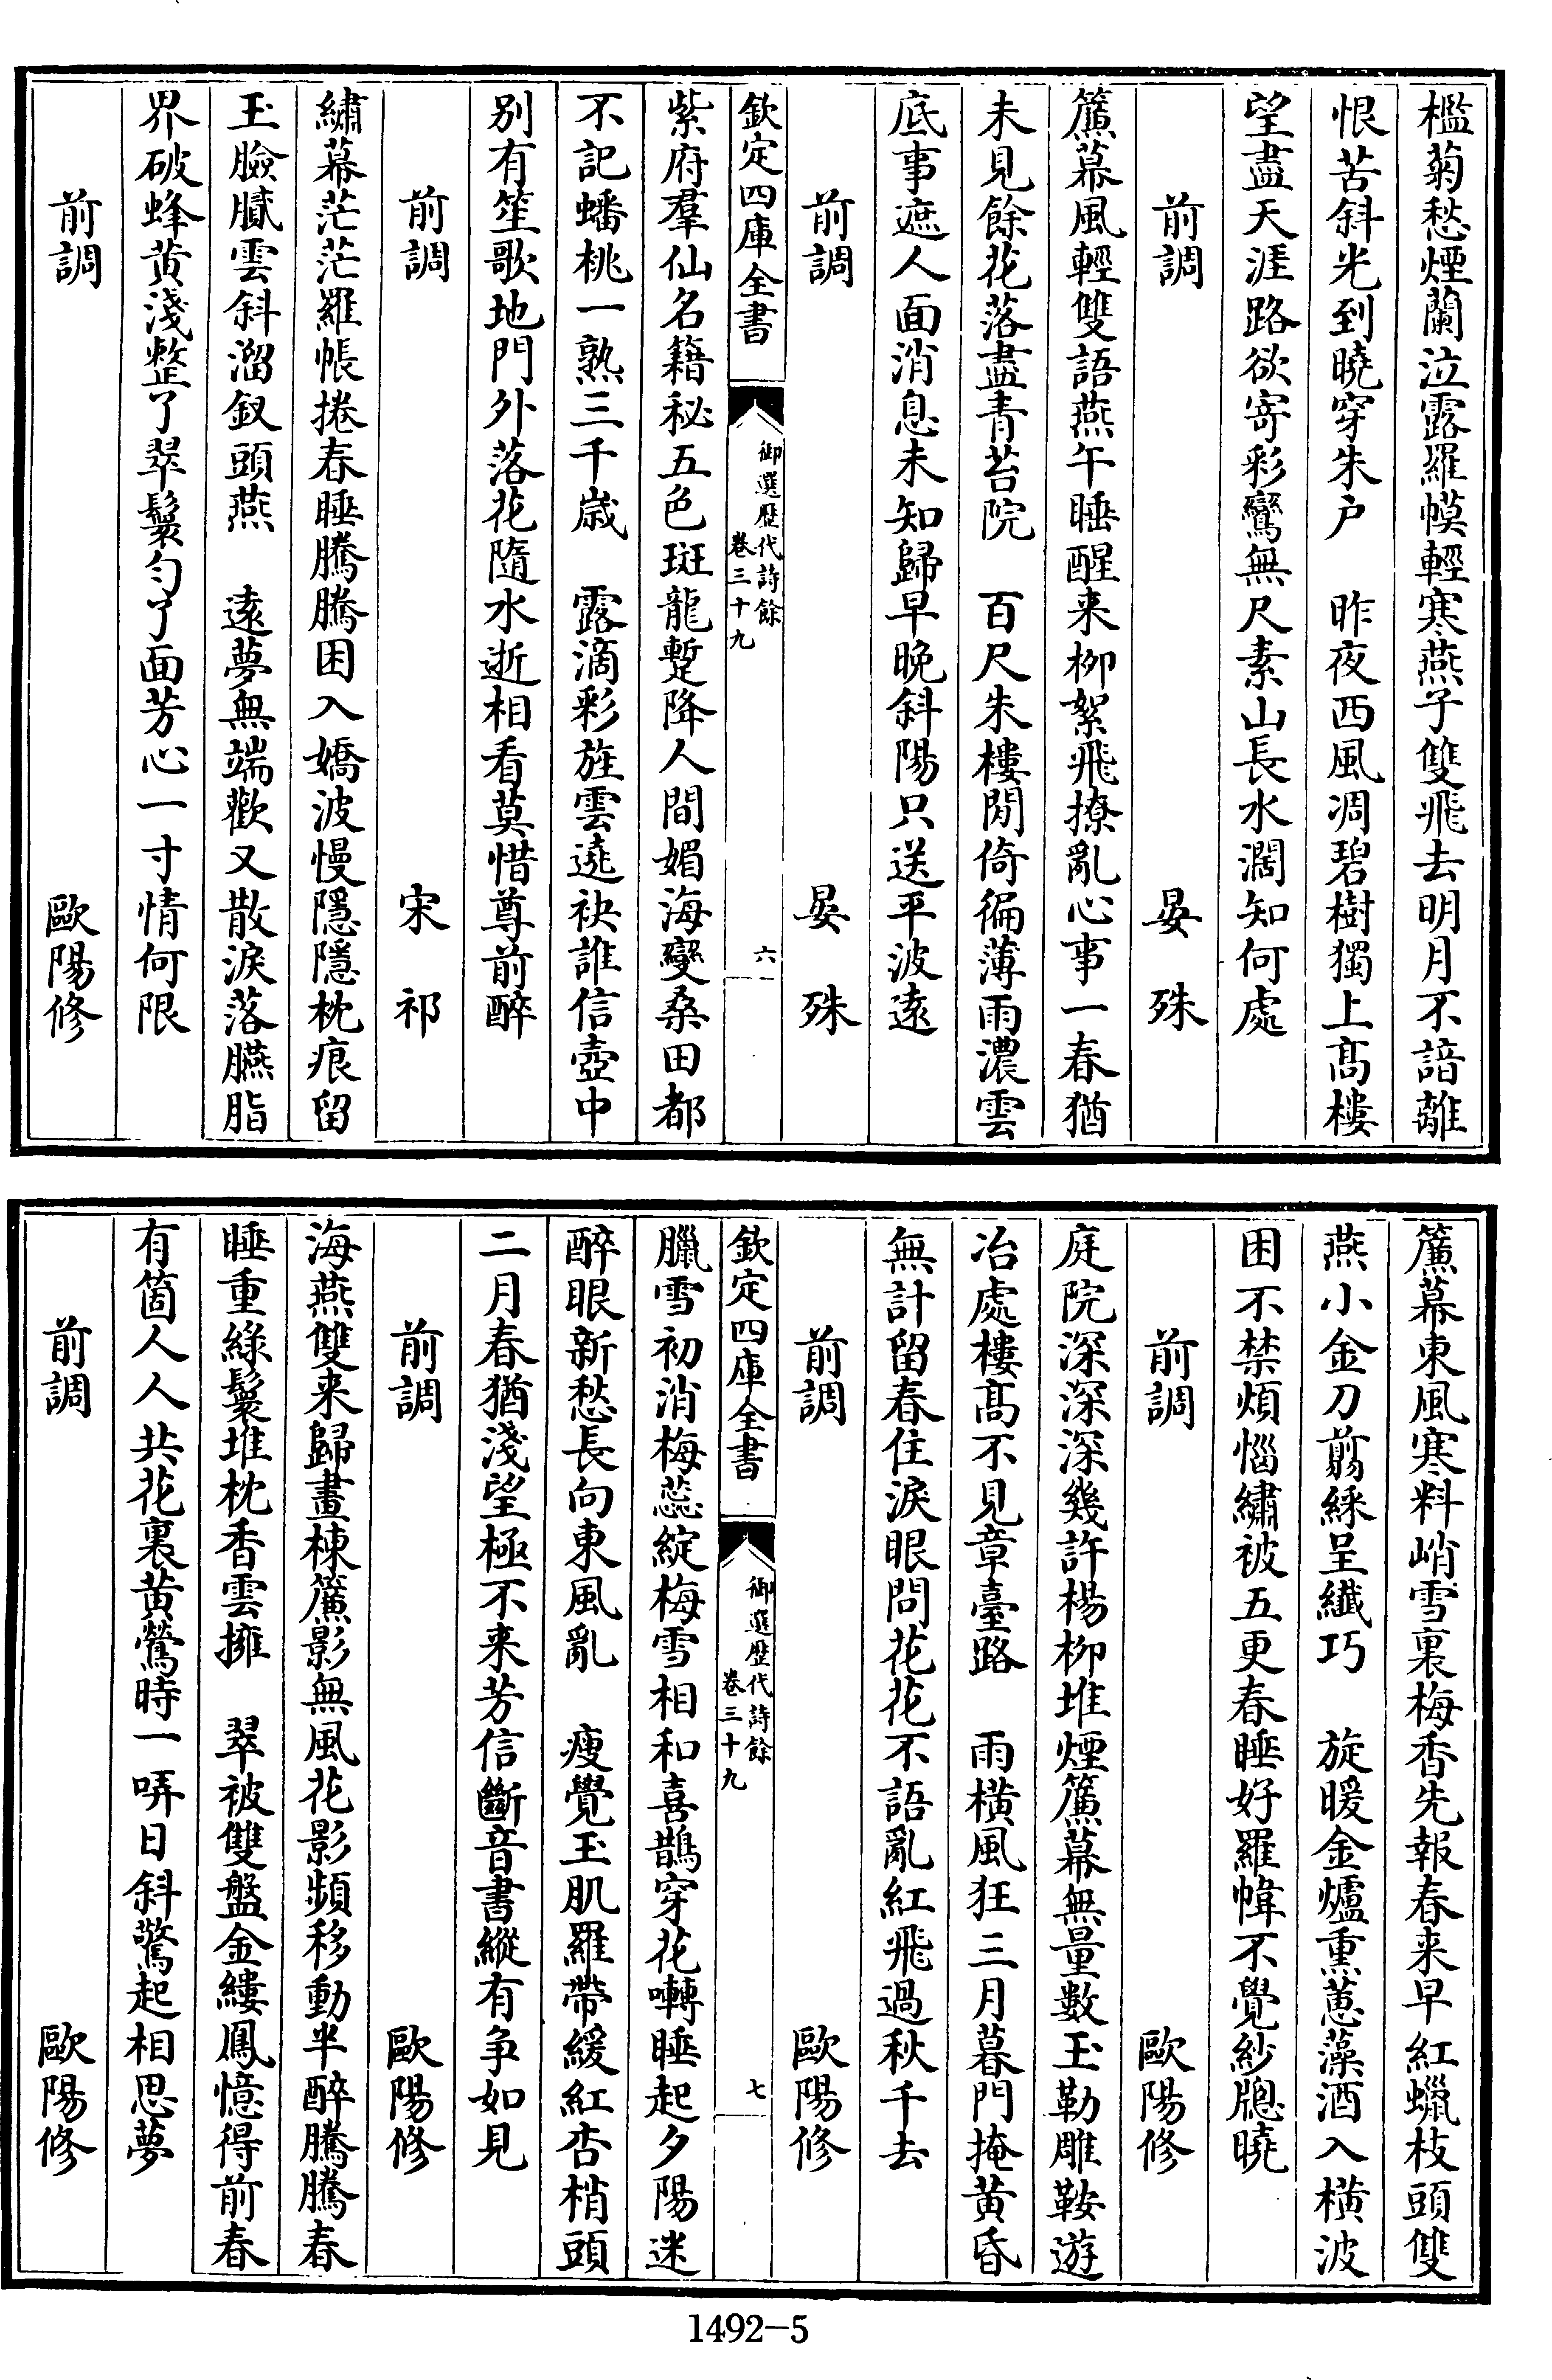 檻菊愁煙蘭泣露羅幙輕寒燕子雙飛去明月不諳離
恨苦斜光到曉穿朱户　昨夜西風凋碧樹獨上髙樓
望盡天涯路欲寄彩鸞無尺素山長水濶知何處
前調　晏殊
簾幕風輕雙語燕午睡醒来栁絮飛撩亂心事一春猶
未見餘花落盡青苔院　百尺朱樓閒倚徧薄雨濃雲
底事遮人面消息未知歸早晚斜陽只送平波逺
前調　晏殊
欽定四庫全書
御選歷代詩餘
卷三十九
六
紫府羣仙名籍秘五色斑龍蹔降人間媚海變桑田都
不記蟠桃一熟三千歳　露滴彩旌雲遶袂誰信壺中
别有笙歌地門外落花隨水逝相看莫惜尊前醉
前調　宋祁
繡幕茫茫羅帳捲春睡騰騰困入嬌波慢隱隱枕痕留
玉臉膩雲斜溜釵頭燕　逺夢無端歡又散淚落臙脂
界破蜂黄淺整了翠鬟匀了面芳心一寸情何限
前調　歐陽修
簾幕東風寒料峭雪裏梅香先報春来早紅蠟枝頭雙
燕小金刀翦綵呈纖巧　旋暖金爐熏蕙藻酒入横波
困不禁煩惱繡被五更春睡好羅幃不覺紗牎曉
前調　歐陽修
庭院深深深幾許楊栁堆煙簾幕無重數玉勒雕鞍遊
冶處樓髙不見章臺路　雨横風狂三月暮門掩黄昏
無計留春住淚眼問花花不語亂紅飛過秋千去
前調　歐陽修
欽定四庫全書
御選歷代詩餘
卷三十九
七
臘雪初消梅蕊綻梅雪相和喜鵲穿花囀睡起夕陽迷
醉眼新愁長向東風亂　瘦覺玉肌羅帶緩紅杏梢頭
二月春猶淺望極不来芳信斷音書縱有争如見
前調　歐陽修
海燕雙来歸畫棟簾影無風花影頻移動半醉騰騰春
睡重綠鬟堆枕香雲擁　翠被雙盤金縷鳳憶得前春
有箇人人共花裏黄鶯時一哢日斜驚起相思夢
前調　歐陽修
1492-5